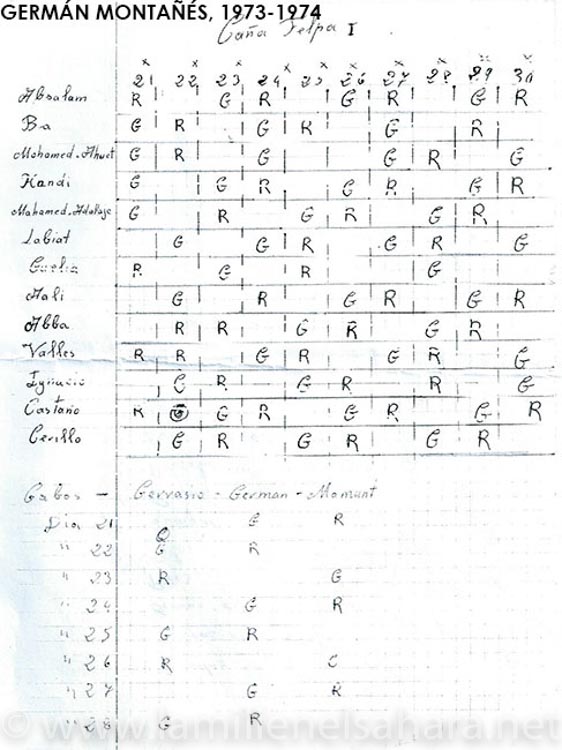 GERMÁN MONTAÑÉS, 1973-1974
Caña Felpa I
21 22 23 24 25 26 27 28 29 30
Absalam R G R G R G R
Ba G R G R G R
Mohamed. G R G G R G
Handi G G R G R G R
Mahamed. G R G R G R
Labiat G G R G R G
R G R G
Aali G R G R G R
Abba R R G R G R
Valles R R G R G R G
Ignacio C R G R R G
Castaño R G G R G R G R
Cerillo G R G R G R
Cabos - Gervasio - German - Momunt
Dia 21 G R
" 22 G R
" 23 R G
" 24 G R
" 25 G R
" 26 R C
" 27 G R
" 28 G R
© www.lamilienelsahara.net